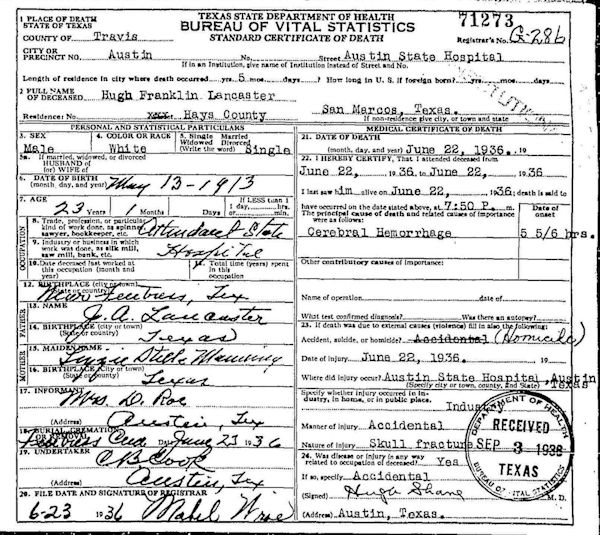 1 PLACE OF DEATH
STATE OF TEXAS
COUNTY OF Travis
CITY OR PRECINCT NO. Austin
TEXAS STATE DEPARTMENT OF HEALTH
BUREAU OF VITAL STATISTICS
STANDARD CERTIFICATE OF DEATH
71273
Registrar's No. G-286
No. Street Austin State Hospital
If in an Institution, give name of Institution instead of Street and No.
Length of residence in city where death occurred yrs. 5 mos. days. How long in U. S. if foreign born? yrs. mos. days
2 FULL NAME OF DECEASED Hugh Franklin Lancaster
Residence: No. Hays County San Marcos, Texas.
If non-residence give city, or town and state
PERSONAL AND STATISTICAL PARTICULARS
3. SEX Male
4. COLOR OR RACE White
5. Single Married Widowed Divorced (Write the word) Single
5a. If married, widowed, or divorced HUSBAND of (or) WIFE of
6. DATE OF BIRTH (month, day, and year) May 13-1913
7. AGE 23 Years 1 Months Days
IF LESS than 1 day hrs. or min.
OCCUPATION
8. Trade, profession, or particular kind of work done, as spinner, sawyer, bookkeeper, etc. Attendant State
9. Industry or business in which work was done, as silk mill, saw mill, bank, etc. Hospital
10. Date deceased last worked at this occupation (month and year)
11. Total time (years) spent in this occupation
12. BIRTHPLACE (city or town) (State or country) Near Fentress, Tex
FATHER
13. NAME J. A. Lancaster
14. BIRTHPLACE (city or town) (State or country) Texas
MOTHER
15. MAIDEN NAME Lizzie Belle Manning
16. BIRTHPLACE (city or town) (State or country) Texas
17. INFORMANT Mrs. D. Roe
(Address) Austin, Tex
18. BURIAL, CREMATION OR REMOVAL
Fentress Cem Date June 23 1936
19. UNDERTAKER C B Cook
(Address) Austin, Tex
20. FILE DATE AND SIGNATURE OF REGISTRAR
6-23 1936 Mabel
MEDICAL CERTIFICATE OF DEATH
21. DATE OF DEATH (month, day, and year) June 22, 1936.
22. I HEREBY CERTIFY, That I attended deceased from
June 22, 1936, to June 22, 1936
I last saw him alive on June 22, 1936; death is said to
have occurred on the date stated above, at 7:50 P. m.
The principal cause of death and related causes of importance were as follows:
Date of onset
Cerebral Hemorrhage 5 5/6 hrs.
Other contributory causes of importance:
Name of operation date of
What test confirmed diagnosis? Was there an autopsy?
23. If death was due to external causes (violence) fill in also the following:
Accident, suicide, or homicide? Accidental (Homicide)
Date of injury June 22, 1936. 19
Where did injury occur? Austin State Hospital, Austin
(Specify city or town, county, and State) Texas
Specify whether injury occurred in industry, in home, or in public place.
Industry
Manner of injury Accidental
Nature of injury Skull fracture
24. Was disease or injury in any way related to occupation of deceased? Yes
If so, specify Accidental
(Signed) Hugh Shane M. D.
(Address) Austin, Texas.
DEPARTMENT OF HEALTH
RECEIVED
SEP 3 1936
TEXAS
BUREAU OF VITAL STATISTICS